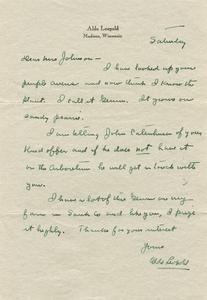 Aldo Leopold
Madison, Wisconsin
Saturday
Dear Mrs Johnson—
I have looked up your
purple avens and now think I know the
plant. I call it Geum. It grows on
sandy prairie.
I am telling John Catenhusen of your
kind offer and if he does not have it
on the Arboretum he will get in touch with
you.
I have a lot of this Geum on my
farm in Sauk Co and like you, I prize
it highly. Thanks for your interest
Yours
Aldo Leopold